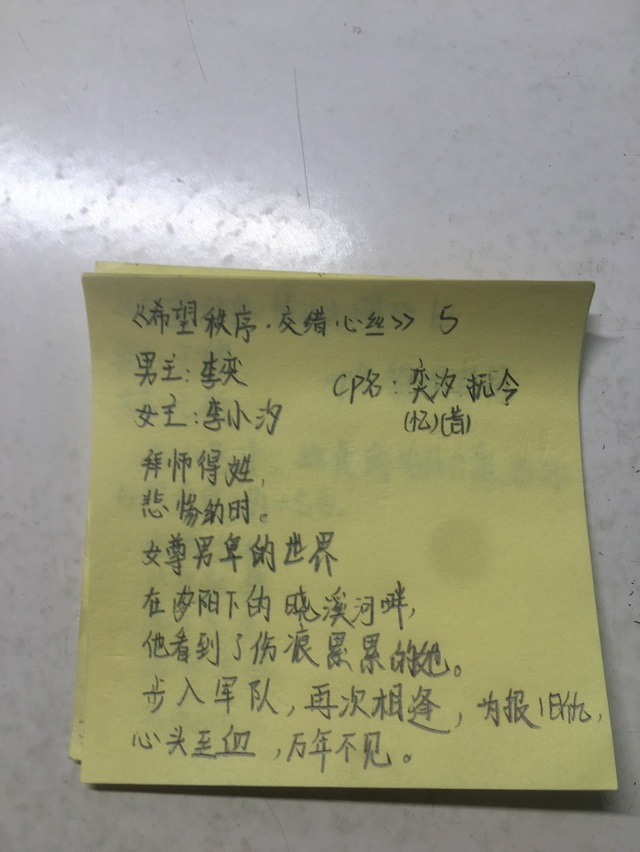 《希望秩序·交错·心丝》 5
男主:李奕
CP名:奕汐抚今
女主:李小汐
(忆)(昔)
拜师得姓,
悲惨幼时。
女尊男卑的世界
在夕阳下的晓溪河畔,
他看到了伤痕累累的她。
步入军队,再次相逢,为报旧仇,
心头至血,万年不见。